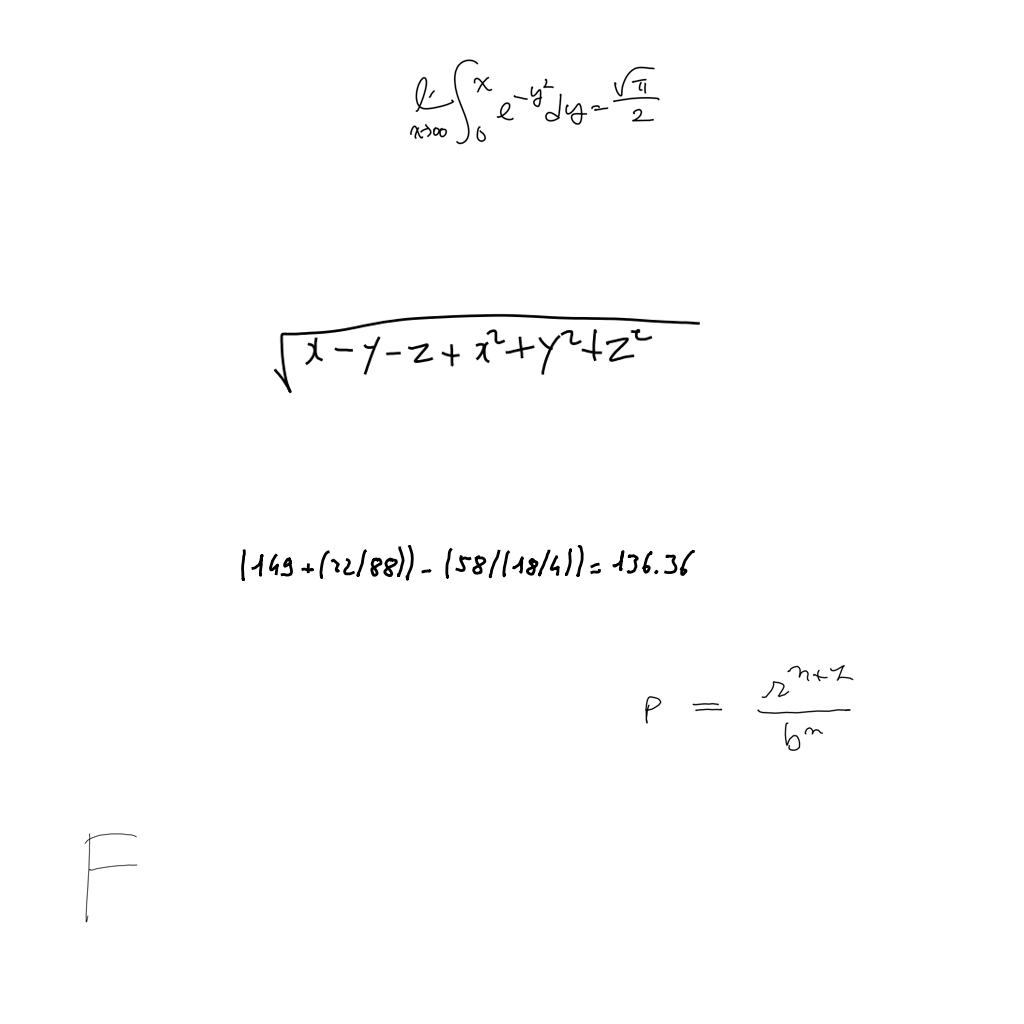 \lim_{x \to \infty} \int_{0}^{x} e^{-y^{2}} dy = \frac{\sqrt{\pi}}{2}
\sqrt{x - y - z + x^{2} + y^{2} + z^{2}}
(149 + (22/88)) - (58/(18/4)) = 136.36
P = \frac{r^{n+z}}{b^{n}}
F